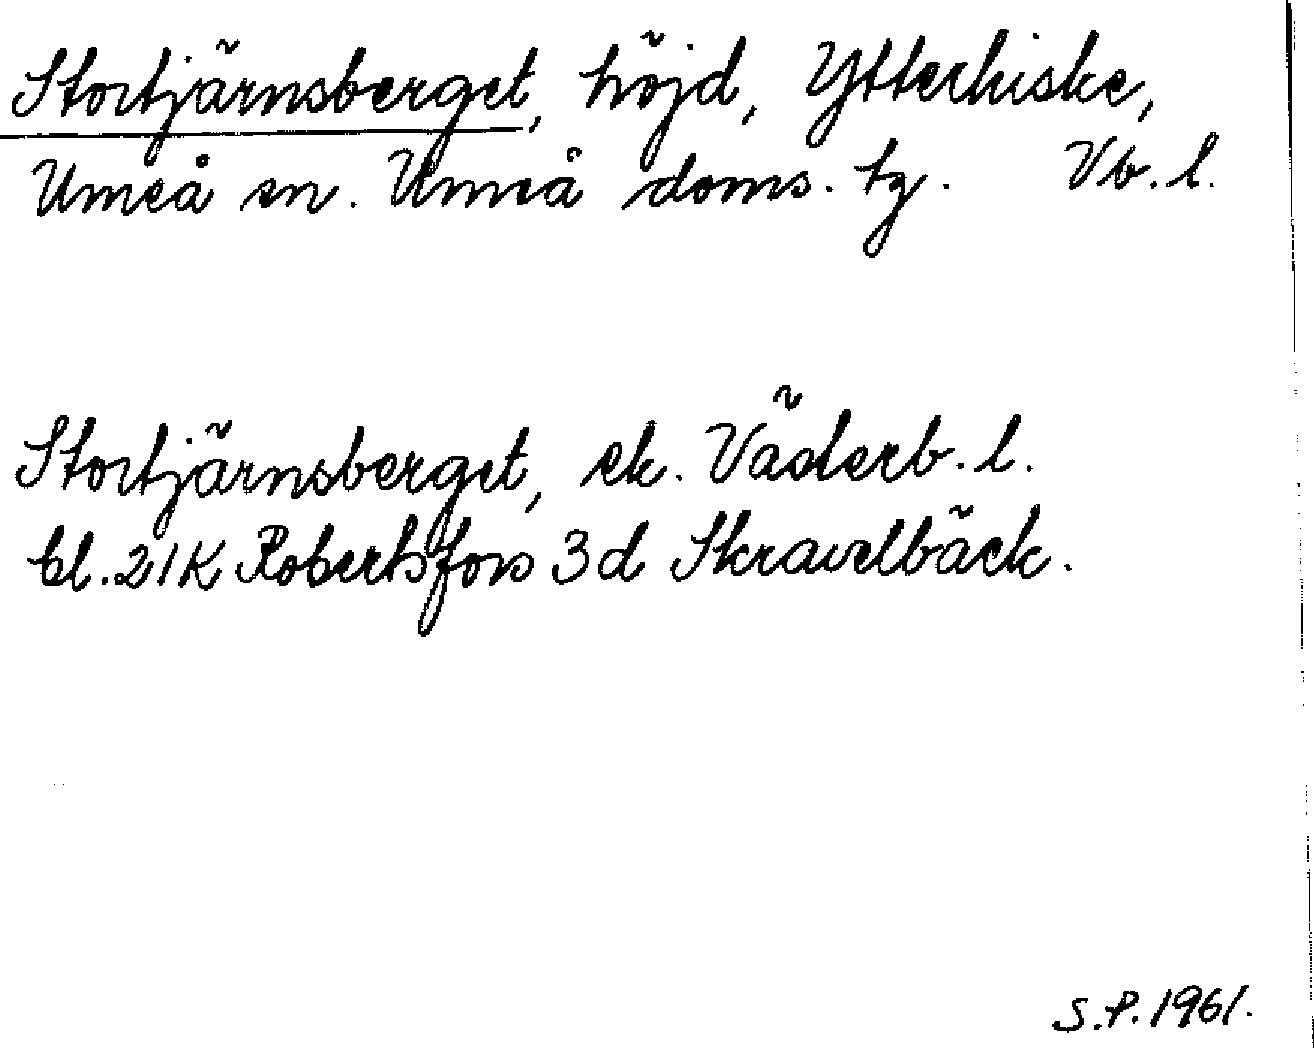 Stortjärnsberget, höjd, Ytterhiske,
Umeå sn. Umeå doms. tg. Vb. l.
Stortjärnsberget, ek. Väderb. l.
bl. 21K Robertsfors 3d Skravelbäck.
S.P. 1961.